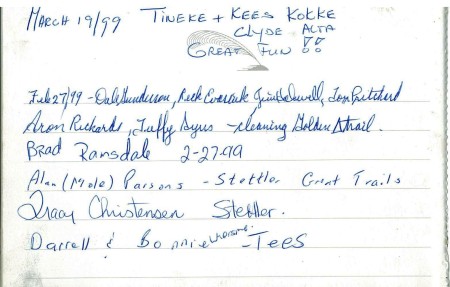 MARCH 19/99 TINEKE + KEES KOKKE
CLYDE ALTA
GREAT FUN !!
Feb 27/99 - Dale Gunderson, Jim Tom Pritchard
Aron Rickards, Tuffy - cleaning Golden trail.
BRAD RANSDALE 2-27-99
Alan (Mole) Parsons - Stettler Great Trails
Tracy Christensen Stettler.
Darrell & Bonnie - Tees